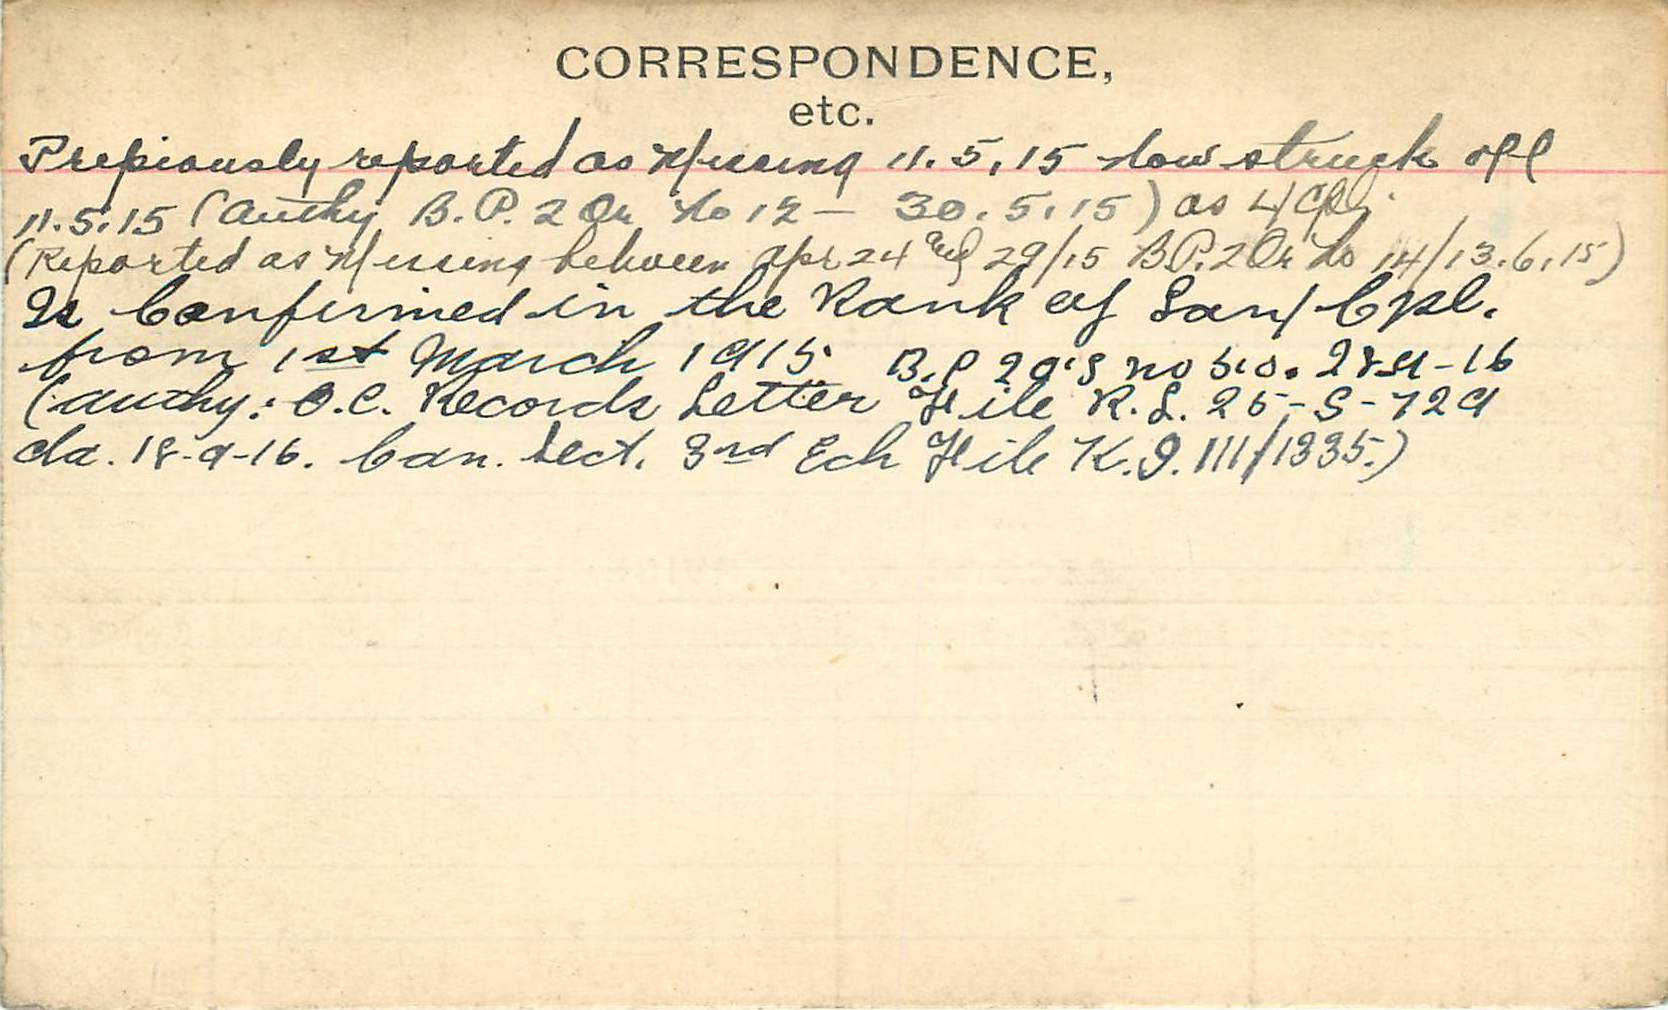 CORRESPONDENCE,
etc.
Previously reported as Missing 11.5.15 now struck off
11.5.15 (Authy B.P. 2 Or No 12 — 30.5.15) as L/Cpl.
(Reported as Missing between Apr 24 and 29/15 B.P. 2 Or No 14/13.6.15)
Is Confirmed in the Rank of Lan/Cpl.
from 1st March 1915. B.P 2 O's no 28-9-16
(authy: O.C. Records Letter File R.L. 25-S-729
dd. 18-9-16. Can. Sect. 3rd Ech File K.9.111/1335.)